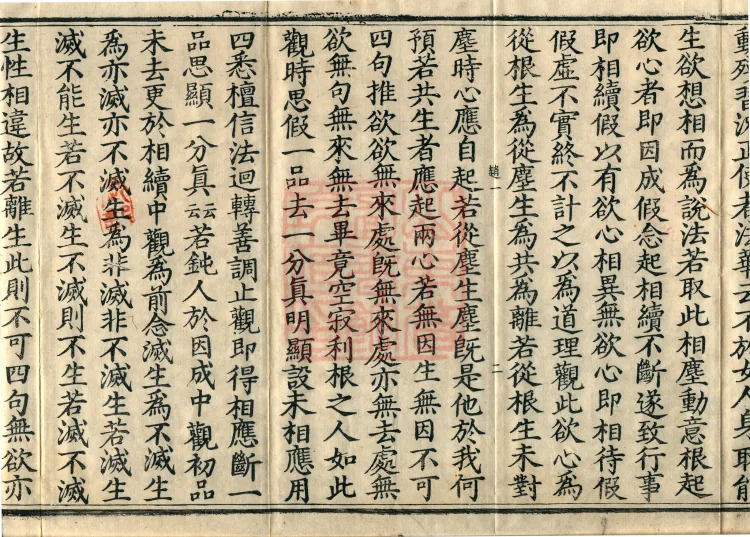 生欲想相而為說法若取此相塵動意根起
欲心者即因成假念起相續不斷遂致行事
即相續假以有欲心相異無欲心即相待假
假虛不實終不計之以為道理觀此欲心為
從根生為從塵生為共為離若從根生未對
趙一
二
塵時心應自起若從塵生塵既是他於我何
預若共生者應起兩心若無因生無因不可
四句推欲欲無來處既無來處亦無去處無
欲無句無來無去畢竟空寂利根之人如此
觀時思假一品去一分真明顯設未相應用
四悉檀信法迴轉善調止觀即得相應斷一
品思顯一分真云云若鈍人於因成中觀初品
未去更於相續中觀為前念滅生為不滅生
為亦滅亦不滅生為非滅非不滅生若滅生
滅不能生若不滅生不滅則不生若滅不滅
生性相違故若離生此則不可四句無欲亦